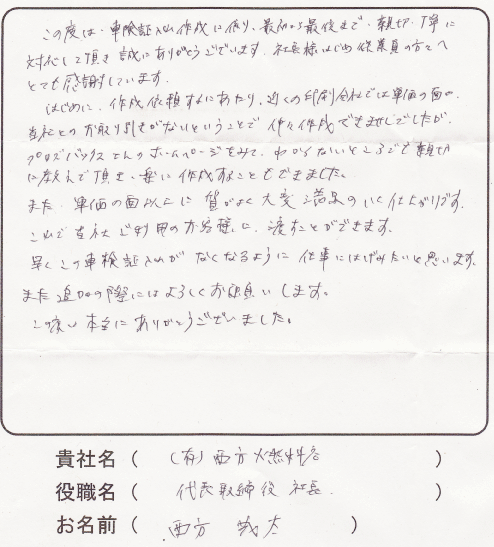 この度は、車検証入れ作成に依り、最初から最後まで、親切、丁寧に
対応して頂き誠にありがとうございます。社長様はじめ従業員の方々へ
とても感謝しています。
はじめに、作成依頼するにあたり、近くの印刷会社では単価の面や、
当社との取り引きがないということで中々作成できませんでしたが、
プロズバックスさんのホームページをみて、わからないところまで親切
に教えて頂き、楽に作成することもできました。
また、単価の面以上に質がよく大変満足のいく仕上がりです。
これで当社ご利用のお客様に、渡すことができます。
早くこの車検証入れがなくなるように仕事にはげみたいと思います。
また追加の際にはよろしくお願いします。
この度は本当にありがとうございました。
貴社名 ( (有) 西方燃料店 )
役職名 ( 代表取締役 社長. )
お名前 ( 西方 )